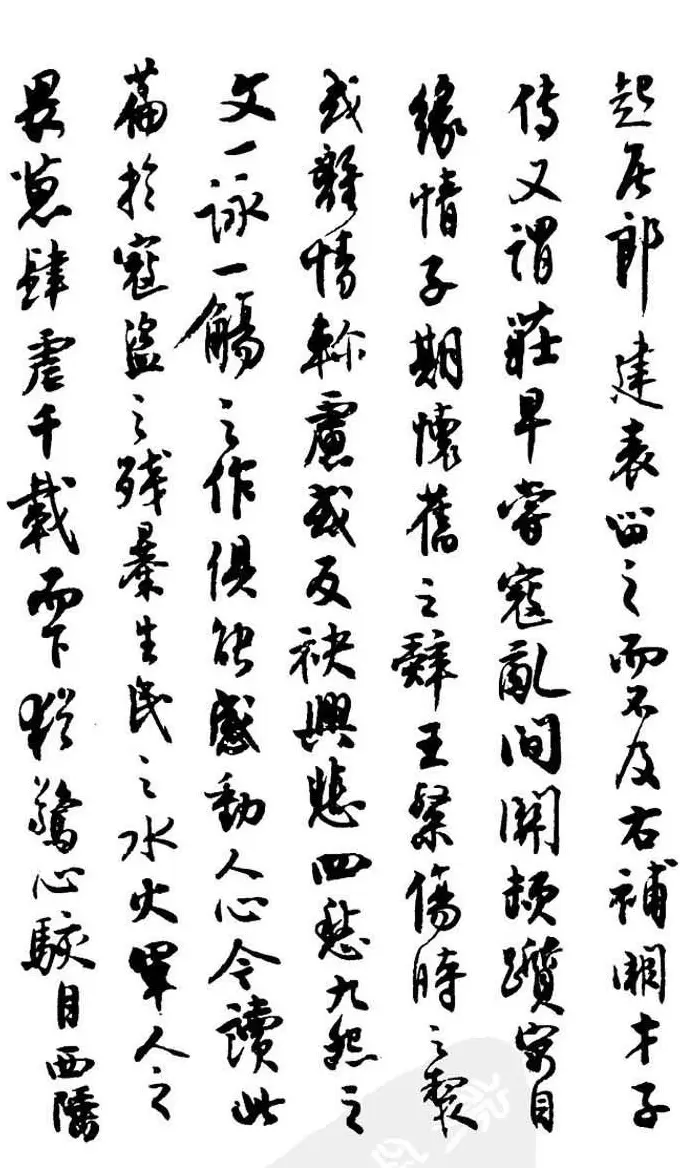 起居郎建表留之而不及右補闕才子
傳又謂莊早嘗寇亂間關頓躓寓目
緣情子期懷舊之辭王粲傷時之製
或離情軫慮或反袂興悲四愁九怨之
文一詠一觴之作俱能感動人心今讀此
篇於寇盜之殘暴生民之水火單人之
畏葸肆虐千載而下猶驚心駭目西陲